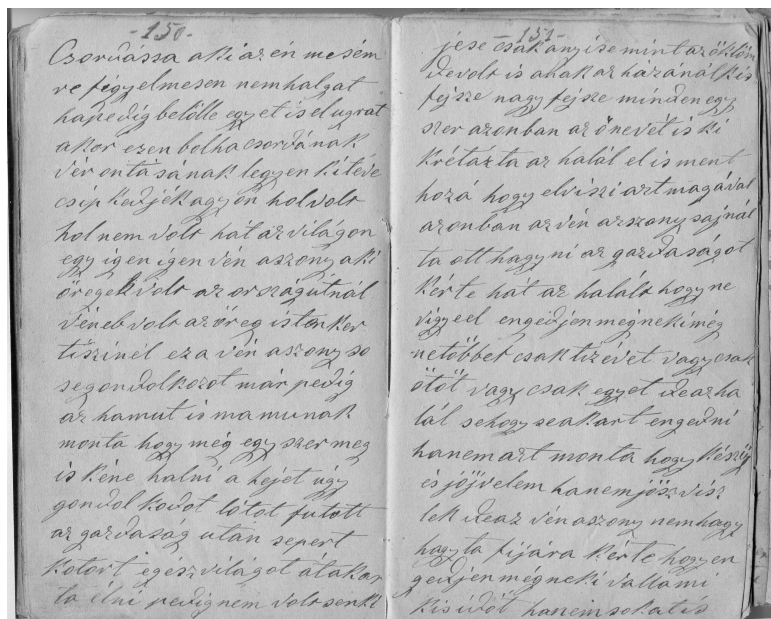 -150-
Csordássa aki az én mesém
re figyelmesen nem halgat
ha pedig belölle egyet is el ugrat
akor ezen bolha csordának
vér ontásának legyen ki téve
csip kedjék agyon hol volt
hol nem volt hát az világon
egy igen igen vén aszony aki
öregek volt az országútnál
véneb volt az öreg isten ker
tiszinél ez a vén aszony so
se gondolkozot már pedig
az hamut is mamunak
monta hogy még egyszer meg
is kéne halni a hejet úgy
gondolkodot lótot futott
az gazdaság után sepert
kotort egész világot át akar
ta élni pedig nem volt senki
-151-
jése csak anyi se mint az öklöm
de volt is anak az házánál kis
fejsze nagy fejsze minden egy
szer azonban az ö nevét is ki
krétázta az halál el is ment
hozá hogy elviszi azt magával
azonban az vén aszony sajnál
ta ott hagyni az gazdaságot
kérte hát az halált hogy ne
vigye el engedjen még neki még
ne többet csak tiz évet vagy csak
ötöt vagy csak egyet de az ha
lál sehogy se akart engedni
hanem azt monta hogy készúj
és jöjj velem ha nem jösz visz
lek de az vén aszony nem hagy
hagyta fijára kérte hogy en
gedjen még neki vallami
kis idöt ha nem sokat is